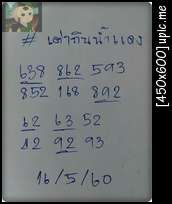 # เต่ากินน้ำแดง
638 862 593
852 168 892
62 63 52
12 92 93
16/5/60
[450x600] upic.me